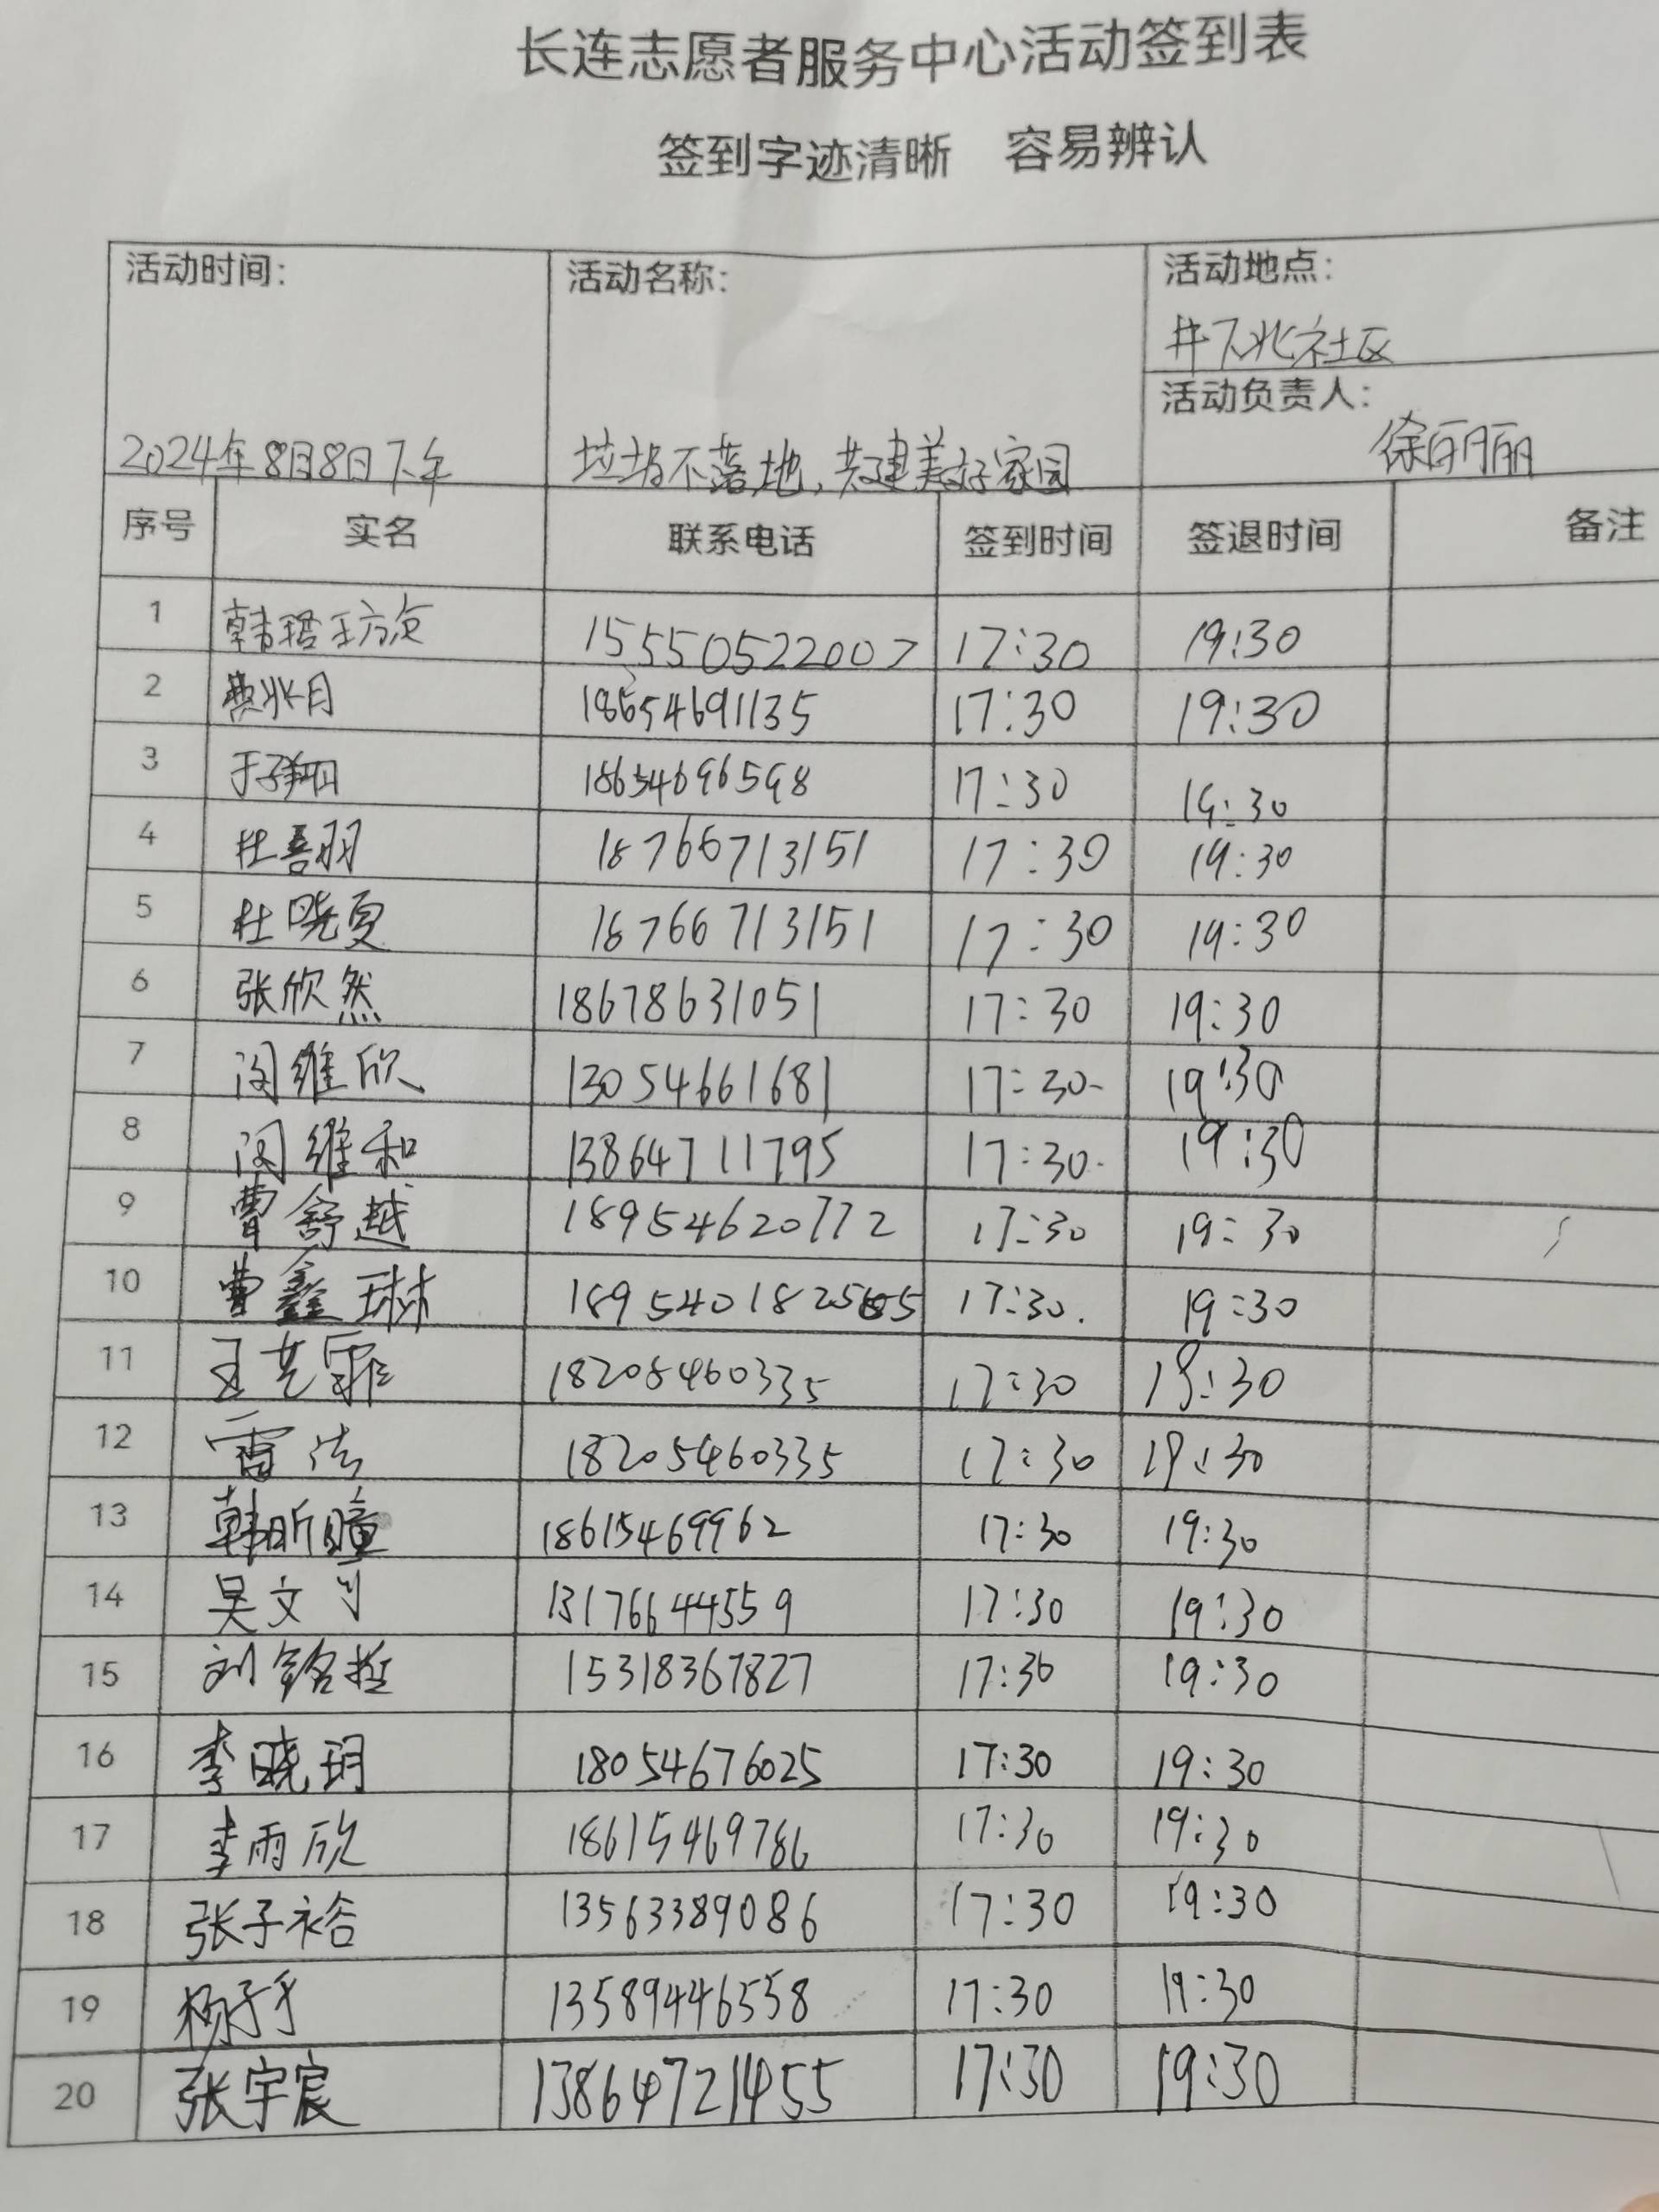 长连志愿者服务中心活动签到表
签到字迹清晰 容易辨认
活动时间: 活动名称: 活动地点:
井下北社区
活动负责人:
2024年8月8日下午 垃圾不落地,共建美好家园 徐丽丽
序号 实名 联系电话 签到时间 签退时间 备注
1 韩珺 15550522007 17:30 19:30
2 费冰月 18654691135 17:30 19:30
3 于子翔 18654696598 17:30 19:30
4 杜善羽 18766713151 17:30 19:30
5 杜晓夏 18766713151 17:30 19:30
6 张欣然 18678631051 17:30 19:30
7 闵维欣 13054661681 17:30 19:30
8 闵维和 13864711795 17:30 19:30
9 曹舒越 18954620772 17:30 19:30
10 曹鑫琳 17:30 19:30
11 王艺霏 18205460335 17:30 19:30
12 雷洁 18205460335 17:30 19:30
13 韩昕瞳 18615469962 17:30 19:30
14 吴文 13176644559 17:30 19:30
15 刘铭哲 15318367827 17:30 19:30
16 李晓玥 18054676025 17:30 19:30
17 李雨欣 18615469786 17:30 19:30
18 张子裕 13563389086 17:30 19:30
19 杨子 13589446558 17:30 19:30
20 张宇宸 13864721455 17:30 19:30